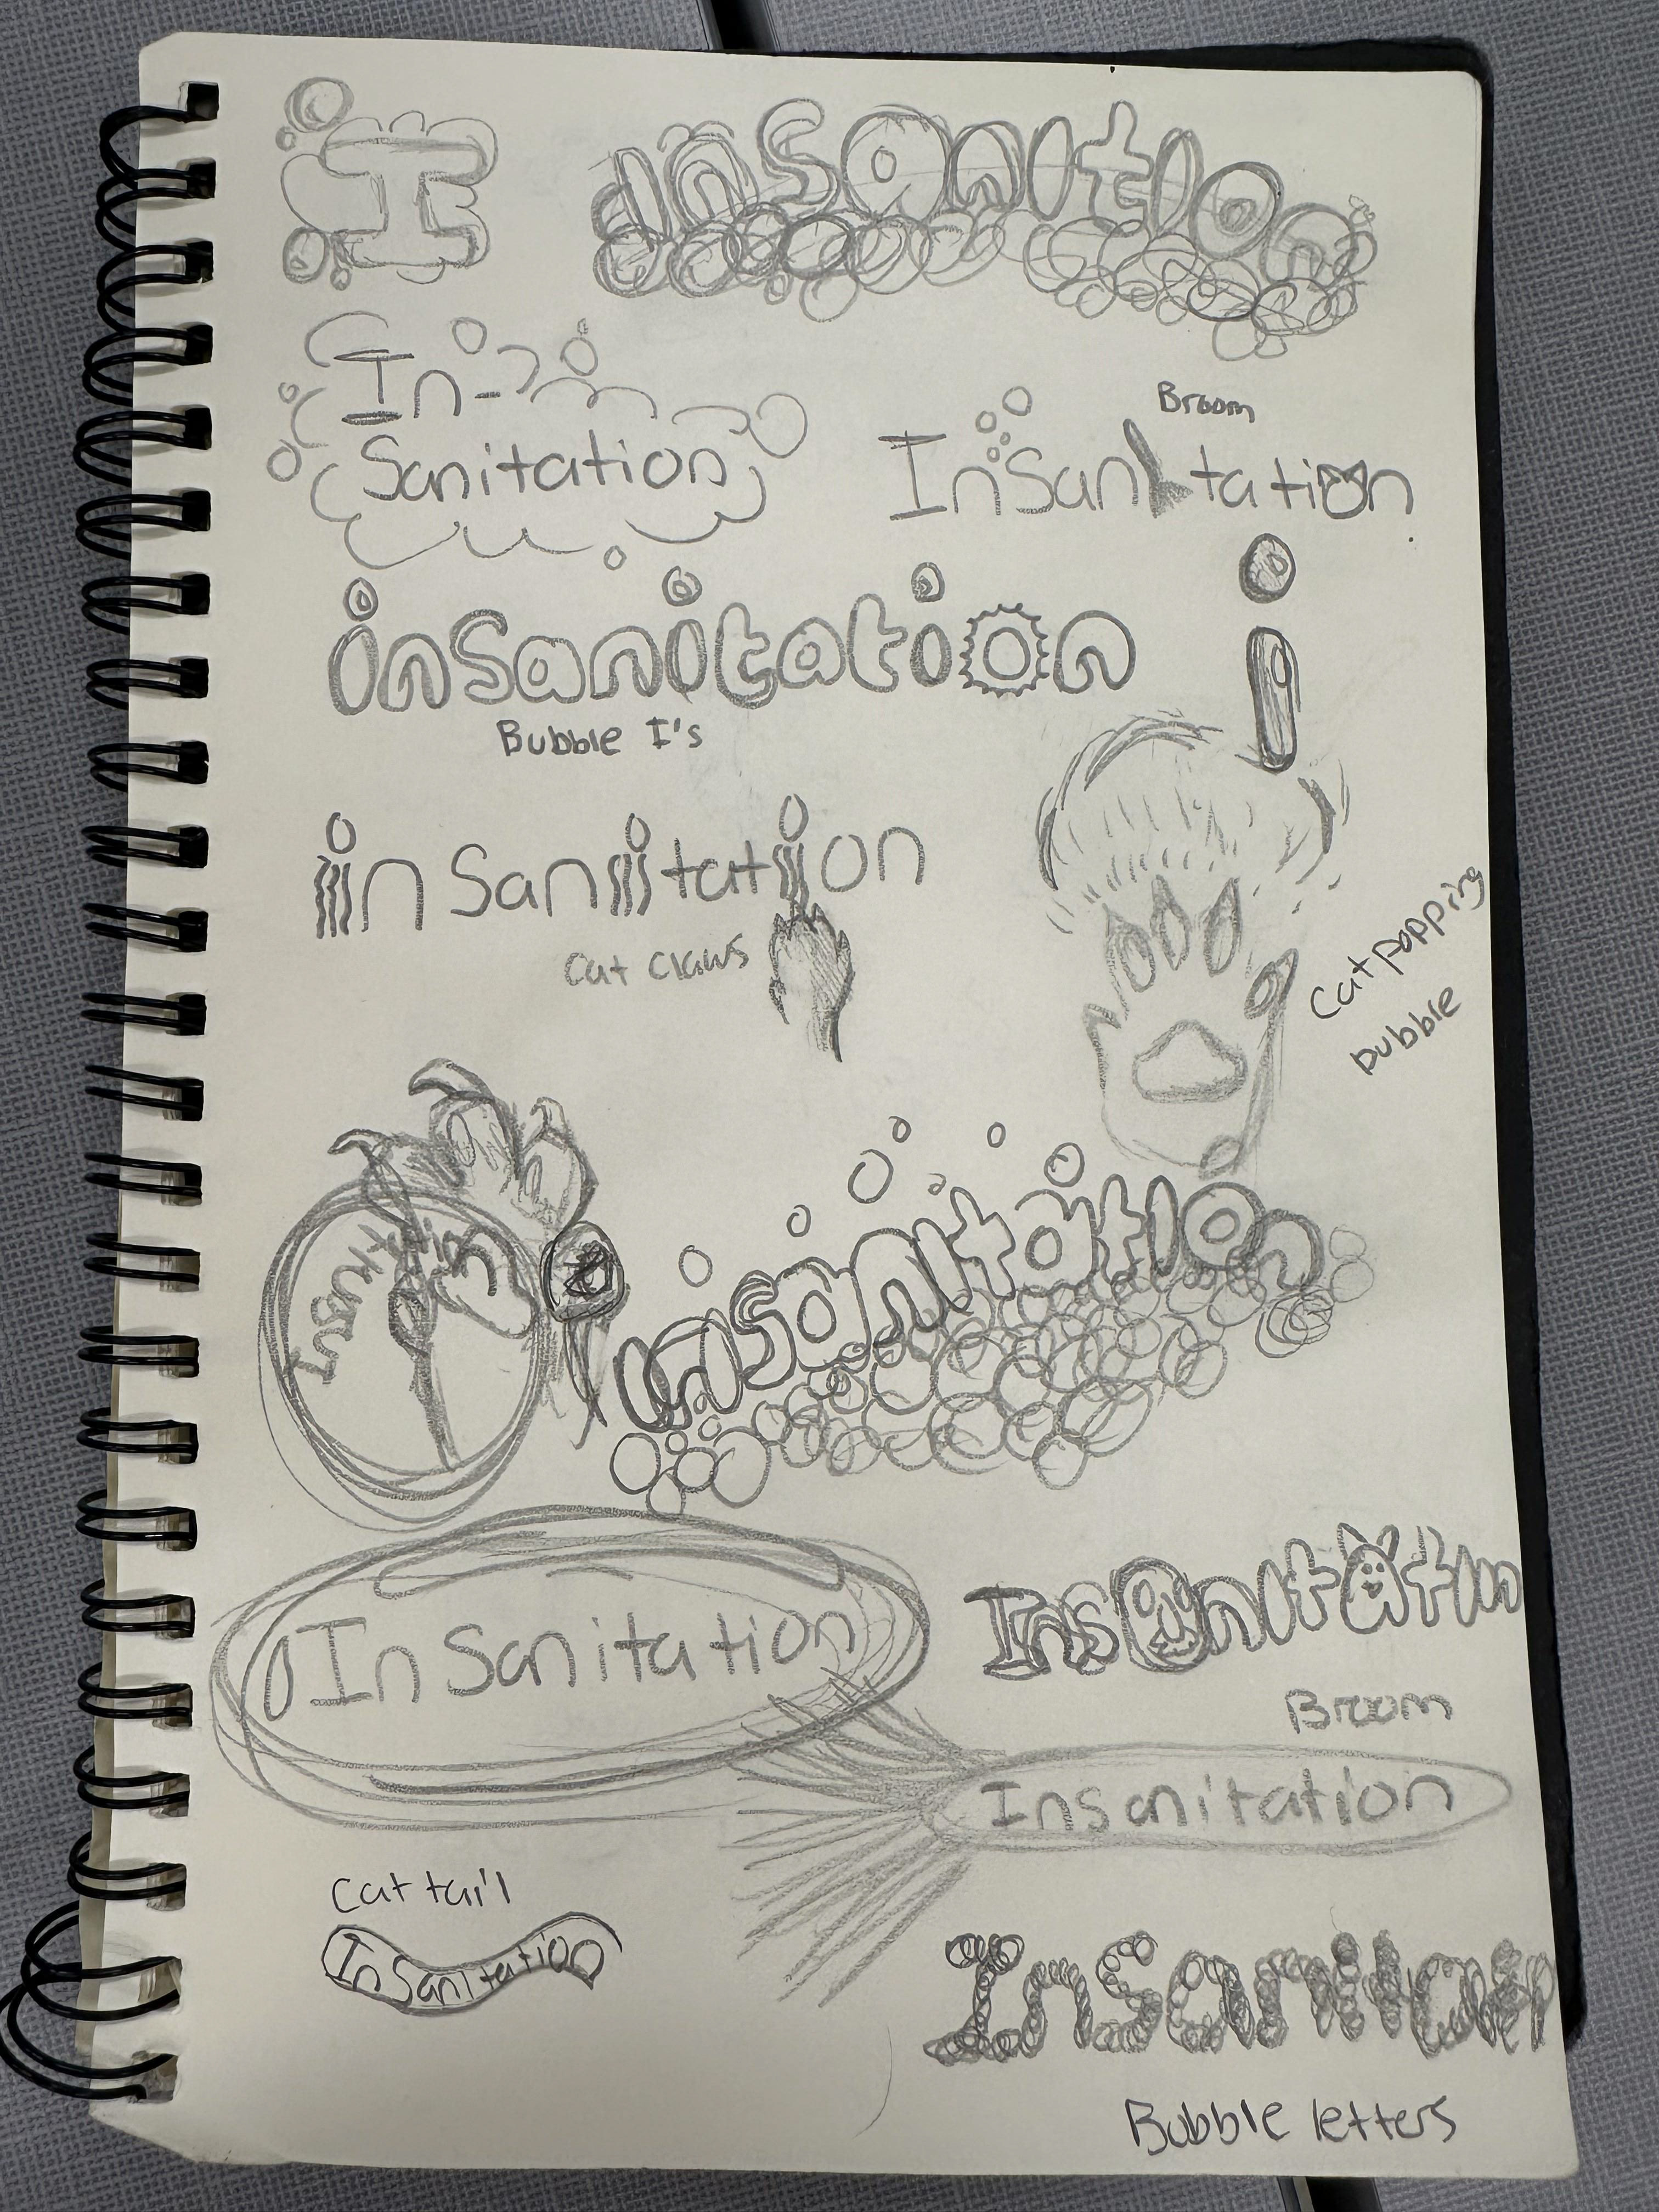 I
insanition
In-
Sanitation
Broom
InSanitation
i
insanitation
Bubble I's
insanitation
Cat Claws
Cat popping
bubble
insanitation
InSanitation
Insanitatin
Broom
Insanitation
Cat tail
InSanitation
Bubble letters